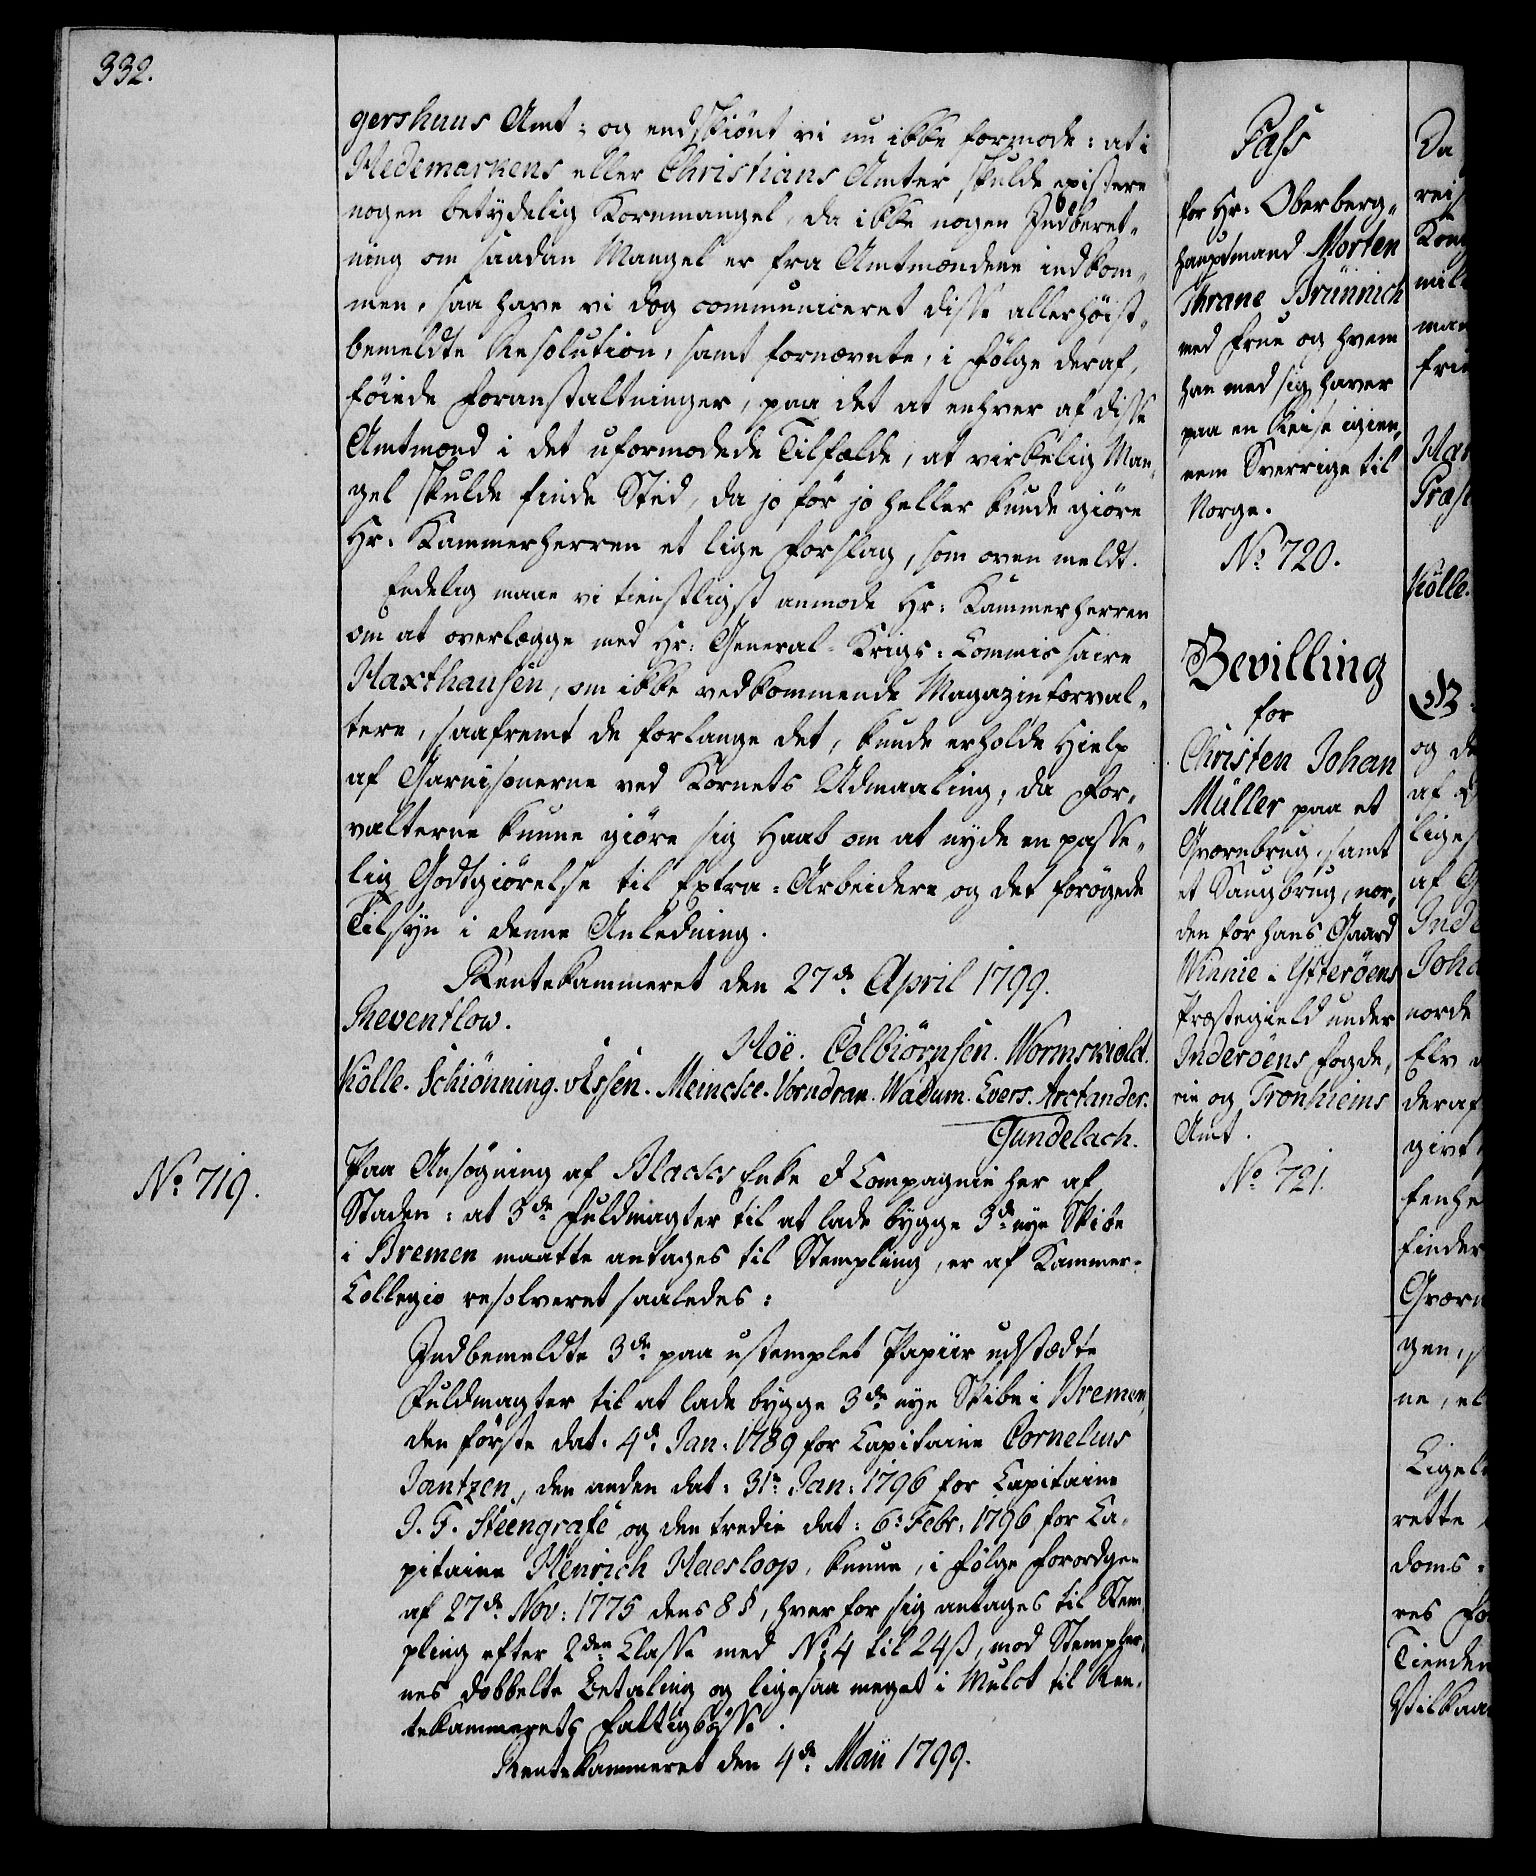 332.
gershuus Amt: og endskiönt vi nu ikke formode: at i
Hedemarkens eller Christians Amter skulde existere
nogen betydelig Kornmangel, da ikke nogen Indberet-
ning om saadan Mangel er fra Amtmændene indkom-
men, saa have vi dog communiceret disse allerhöist-
bemeldte Resolution, samt fornævnte, i Fölge deraf,
föiede Foranstaltninger, paa det at enhver af disse
Amtmænd i det uformodede Tilfælde, at virkelig Man-
gel skulde finde Sted, da jo för jo heller kunde giöre
Hr. Kammerherren et lige Forslag, som oven meldt.
Endelig maae vi tienstligst anmode Hr: Kammerherren
om at overlægge med Hr: General-Krigs-Commissaire
Haxthausen, om ikke vedkommende Magazinforval-
tere, saafremt de forlange det, kunde erholde Hielp
af Garnisonerne ved Kornets Udmaaling, da For-
valterne kunne giöre sig Haab om at nyde en passe-
lig Godtgiörelse til Extra-Arbeidere og det forögede
Tilsyn i denne Anledning.
Rentekammeret den 27de April 1799.
Reventlow.
Hoë. Colbiörnsen. Wormskiold.
Kölle. Schiönning. Assen. Meincke. Vorndran. Wadum. Evers. Arctander.
Gundelach.
No 719.
Paa Ansögning af Blacks Enke & Compagnie her af
Staden: at 3de Fuldmagter til at lade bygge 3de nye Skibe
i Bremen maatte antages til Stempling, er af Kammer-
Collegio resolveret saaledes:
Indbemeldte 3de paa ustemplet Papiir udstædte
Fuldmagter til at lade bygge 3de nye Skibe i Bremen,
den förste dat. 4de Jan: 1789 for Capitaine Cornelius
Jantzen, den anden dat: 31te Jan: 1796 for Capitaine
J. F. Steengrafe og den tredie dat: 6: Febr: 1796 for Ca-
pitaine Henrich Haesloop, kunne, i Fölge Forordgen
af 27de Nov: 1775 dens 8 §, hver for sig antages til Stem-
pling efter 2den Classe med No 4 til 24 ß, mod Stempler-
nes dobbelte Betaling og ligesaa meget i Mulct til Ren-
tekammerets Fattigbösse.
Rentekammeret den 4de Maii 1799.
Pass
for Hr: Oberberg-
hauptmand Morten
Thrane Brünnich
med Frue og hvem
han med sig haver
paa en Reise igien-
nem Sverrige til
Norge.
No 720.
Bevilling
for
Christen Johan
Müller paa et
Qværnbrug, samt
et Saugbrug, nor-
den for hans Gaard
Winnie i Ytteröens
Præstegield under
Inderöens Fogde-
rie og Tronhiems
Amt.
No 721.
Da
Kölle.
og de
af
af
norde
Elv
deraf
givt
finder
Qværn
gen,
ne, el
rette
doms-
res
Tienden
Vilkaar